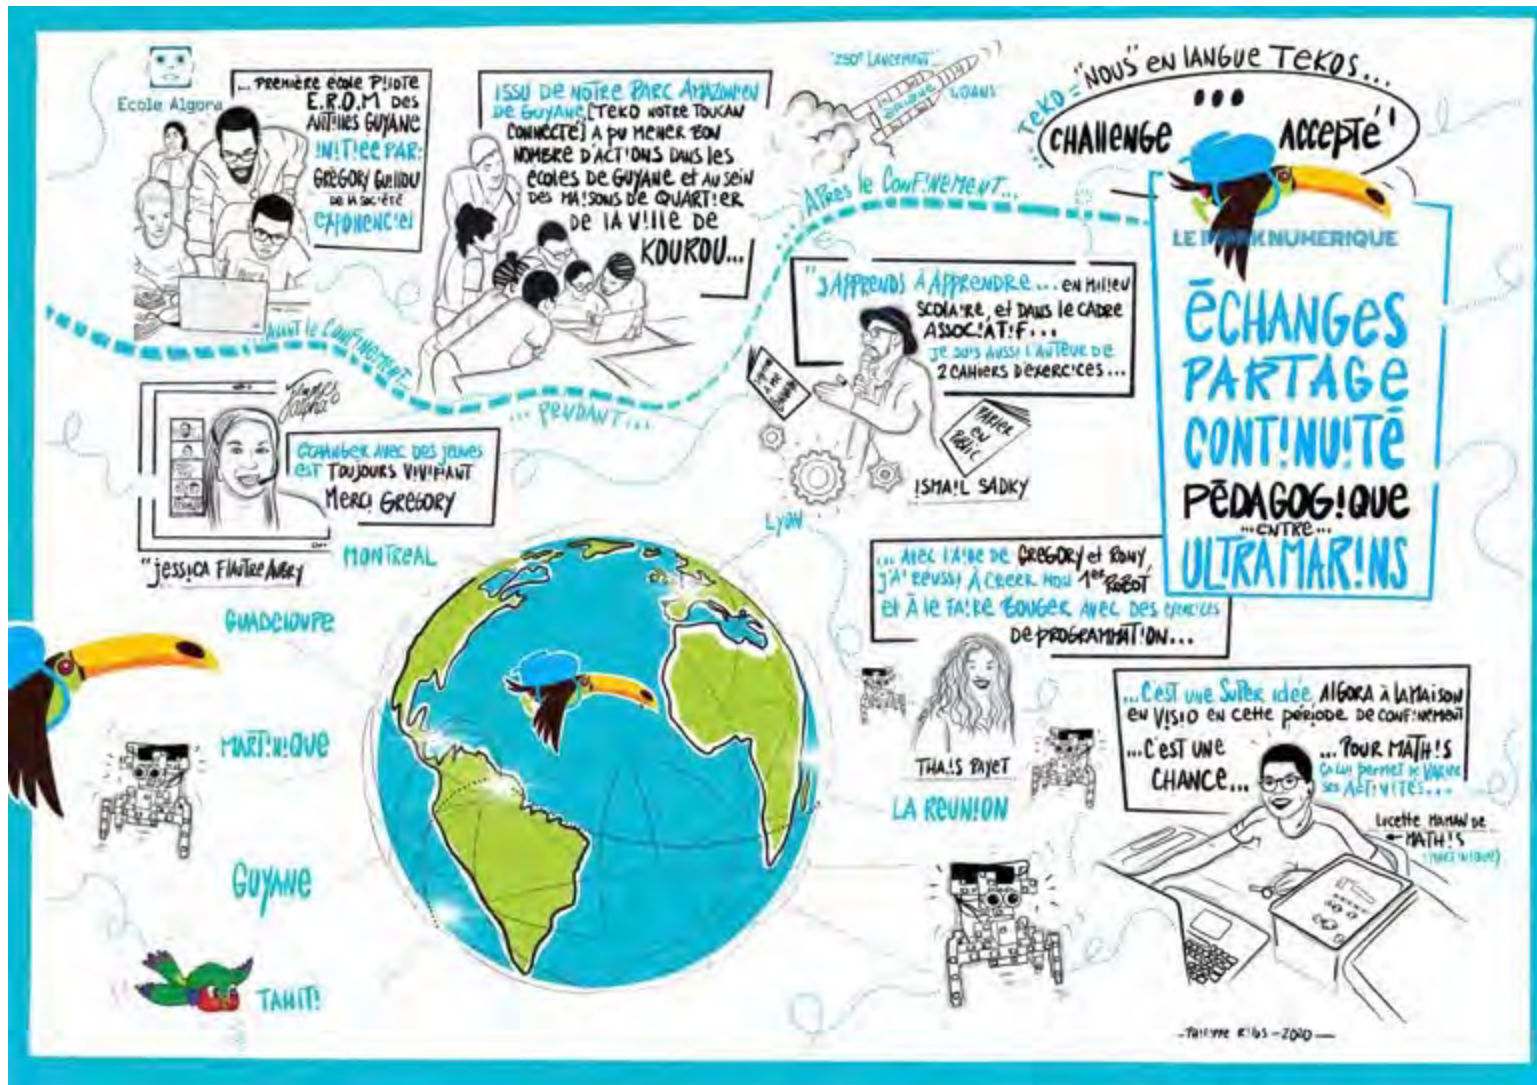 Ecole Algora
... PREMIÈRE ECOLE PILOTE
E.R.O.M DES
ANTILLES GUYANE
INITIEE PAR:
GRÉGORY GUILLOU
DE LA SOCIÉTÉ
EXPONENCIEL
ISSU DE NOTRE PARC AMAZONIEN
DE GUYANE, [TEKO NOTRE TOUCAN
CONNECTÉ] A PU MENER BON
NOMBRE D'ACTIONS DANS LES
ECOLES DE GUYANE ET AU SEIN
DES MAISONS DE QUARTIER
DE LA VILLE DE
KOUROU...
"250e LANCEMENT"
40 ANS
TEKO = "NOUS" EN LANGUE TEKOS...
...
CHALLENGE ACCEPTÉ!
... APRÈS LE CONFINEMENT...
... AVANT LE CONFINEMENT...
... PENDANT...
LE PARK NUMERIQUE
ÉCHANGES
PARTAGE
CONTINUITÉ
PÉDAGOGIQUE
... ENTRE ...
ULTRAMARINS
"J'APPRENDS À APPRENDRE... EN MILIEU
SCOLAIRE, ET DANS LE CADRE
ASSOCIATIF...
JE SUIS AUSSI L'AUTEUR DE
2 CAHIERS D'EXERCICES...
PARLER
EN
PUBLIC
ISMAIL SADKY
LYON
ECHANGER AVEC DES JEUNES
EST TOUJOURS VIVIFIANT
MERCI GREGORY
"JESSICA FLAUTRE AUBRY
MONTREAL
GUADELOUPE
MARTINIQUE
GUYANE
TAHITI
... AVEC L'AIDE DE GREGORY ET RONY,
J'AI REUSSI À CREER MON 1er ROBOT
ET À LE FAIRE BOUGER AVEC DES EXERCICES
DE PROGRAMMATION...
THAIS PAYET
LA REUNION
...C'EST UNE SUPER IDÉE, ALGORA À LA MAISON
EN VISIO EN CETTE PÉRIODE DE CONFINEMENT
...C'EST UNE
CHANCE...
... POUR MATHIS
ÇA LUI PERMET DE VARIER
SES ACTIVITÉS...
LUCETTE MAMAN DE
MATHIS
(MARTINIQUE)
- PHILIPPE RIGS - 2020 -